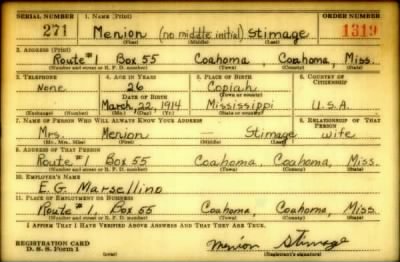 SERIAL NUMBER 1. NAME (Print) ORDER NUMBER
271 Menion (no middle initial) Stimage 1319
(First) (Middle) (Last)
2. ADDRESS (Print)
Route #1 Box 55 Coahoma, Coahoma, Miss.
(Number and street or R. F. D. number) (Town) (County) (State)
3. TELEPHONE 4. AGE IN YEARS 5. PLACE OF BIRTH 6. COUNTRY OF CITIZENSHIP
None 26 Copiah
DATE OF BIRTH (Town or county)
March, 22, 1914 Mississippi U.S.A.
(Exchange) (Number) (Mo.) (Day) (Yr.) (State or country)
7. NAME OF PERSON WHO WILL ALWAYS KNOW YOUR ADDRESS 8. RELATIONSHIP OF THAT PERSON
Mrs. Menion — Stimage wife
(Mr., Mrs., Miss) (First) (Middle) (Last)
9. ADDRESS OF THAT PERSON
Route #1, Box 55 Coahoma, Coahoma, Miss.
(Number and street or R. F. D. number) (Town) (County) (State)
10. EMPLOYER'S NAME
E. G. Marsellino
11. PLACE OF EMPLOYMENT OR BUSINESS
Route #1, Box 55 Coahoma, Coahoma, Miss.
(Number and street or R. F. D. number) (Town) (County) (State)
I AFFIRM THAT I HAVE VERIFIED ABOVE ANSWERS AND THAT THEY ARE TRUE.
REGISTRATION CARD
D. S. S. Form 1 (over) Menion Stimage
(Registrant's signature)